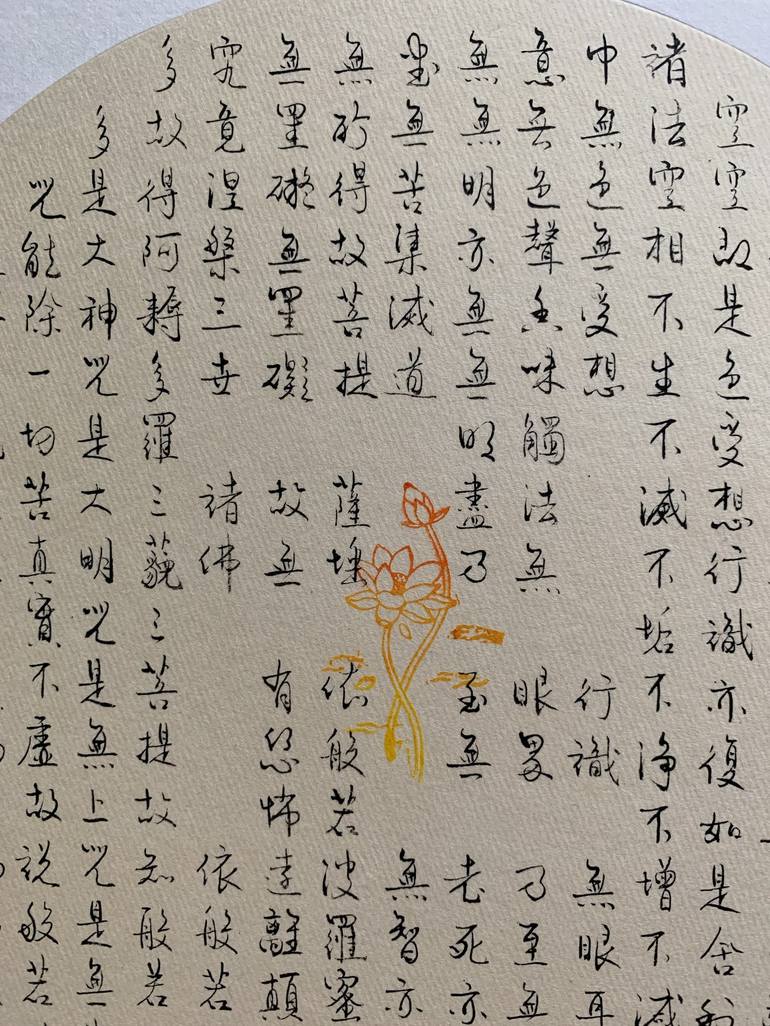 空空即是色受想行識亦復如是舍利
諸法空相不生不滅不垢不淨不增不減
中無色無受想行識無眼耳
意无色聲香味觸法無眼界乃至無
無無明亦無無明盡乃至無老死亦
盡無苦集滅道無智亦
無所得故菩提薩埵依般若波羅蜜
無罣礙無罣礙故無有恐怖遠離顛
究竟涅槃三世諸佛依般若
多故得阿耨多羅三藐三菩提故知般若
多是大神咒是大明咒是無上咒是無
咒能除一切苦真實不虛故說般若